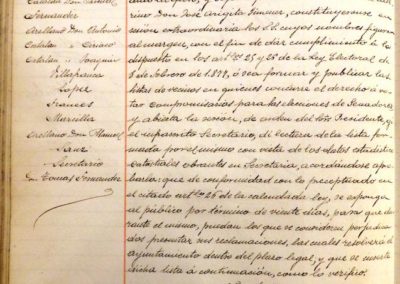 Catalán Don Samuel
Fernandez
Arellano Don Antonio
Catalán " Ciriaco
Catalán " Joaquin
Villafranca
Lopez
Frances
Marcilla
Arellano Don Manuel
Sanz
Secretario
Don Tomas Fernandez
rino Don José Azigita Jimenez, constituyeronse en
sion extraordinaria los S.S. cuyos nombres figuran
al margen, con el fin de dar cumplimiento á lo
dispuesto en los artos 25 y 26 de la Ley Electoral de
8 de Febrero de 1877, ó sea formar y publicar las
listas de vecinos en quienes concurre el derecho á vo-
tar compromisarios para las elecciones de Senadores
y abierta la sesion, de orden del Sor Presidente, yo
el infrascrito Secretario, dí lectura de la lista for-
mada por el mismo con vista de los datos estadis
catastrales obrantes en Secretaria, acordandose apro-
barla: que de conformidad con lo preceptuado en
el citado arto 26 de la calendada ley, se esponga
al público por término de veinte dias, para que du-
rante el mismo, puedan los que se consideren perjudica-
dos presentar sus reclamaciones, las cuales resolverá el
ayuntamiento dentro del plazo legal, y que se inserte
dicha lista á continuacion, como lo verifico.